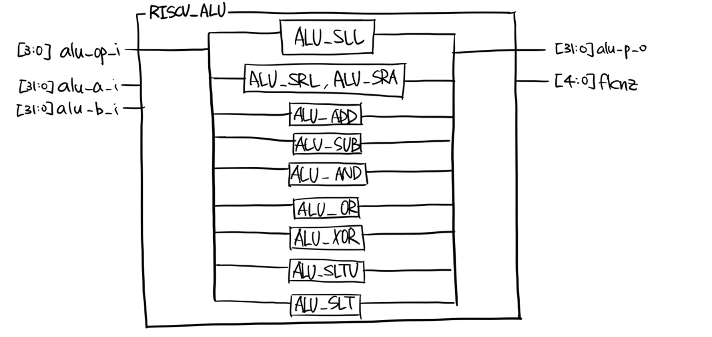 RISCV_ALU
[3:0] alu_op_i
[31:0] alu_a_i
[31:0] alu_b_i
ALU_SLL
ALU_SRL, ALU_SRA
ALU_ADD
ALU_SUB
ALU_AND
ALU_OR
ALU_XOR
ALU_SLTU
ALU_SLT
[31:0] alu_p_o
[4:0] flcnz